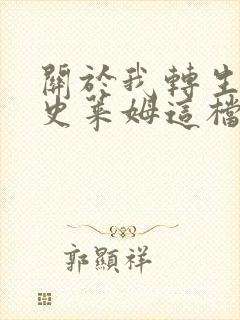 關於我轉生
史萊姆這檔
郭顯祥